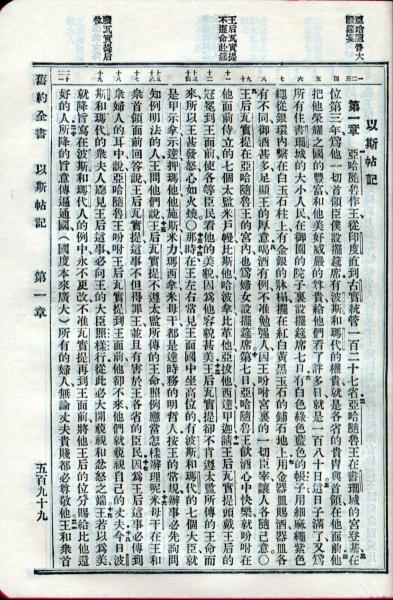 亞哈隨魯大
設筵宴
王后瓦實提
不遵命赴筵
廢瓦實提后
位
以斯帖記
第一章 亞哈隨魯作王從印度直到古實統管一百二十七省亞哈隨魯王在書珊城的宮登基在
位第三年爲他一切首領臣僕設擺筵席有波斯和瑪代的權貴就是各省的貴胄與首領在他面前他
把他榮耀之國的豐富和他美好威嚴的尊貴給他們看了許多日就是一百八十日這日子滿了又爲
所有住書珊城的大小人民在御園的院子裏設擺筵席七日有白色綠色藍色的帳子用細麻繩紫色
繩從銀環內繫在白玉石柱上有金銀的牀榻擺在紅白黃黑玉石的鋪石地上用金器皿賜酒器皿各
有不同御酒甚多足顯王的厚意喝酒有例不准勉强人因王吩咐宮裏的一切臣宰讓人各隨己意○
王后瓦實提在亞哈隨魯王的宮內也爲婦女設擺筵席第七日亞哈隨魯王飲酒心中快樂就吩咐在
他面前侍立的七個太監米戶幔比斯他哈波拿比革他亞拔他西達甲迦請王后瓦實提頭戴王后的
冠冕到王面前使各等臣民看他的美貌因爲他容貌甚美王后瓦實提卻不肯遵太監所傳的王命而
來所以王甚發怒心如火燒○那時在王左右常見王面國中坐高位的有波斯和瑪代的七個大臣就
是甲示拿示達押瑪他他施斯米力瑪西拿米母干都是達時務的明哲人按王的常規辦事必先詢問
知例明法的人王問他們說王后瓦實提不遵太監所傳的王命照例應當怎樣辦理呢米母干在王和
衆首領面前回答說王后瓦實提這事不但得罪王並且有害於王各省的臣民因爲王后這事必傳到
衆婦人的耳中說亞哈隨魯王吩咐王后瓦實提到王面前他卻不來他們就藐視自己的丈夫今日波
斯和瑪代的衆夫人聽見王后這事必向王的大臣照樣行從此必大開藐視和忿怒之端王若以爲美
就降旨寫在波斯和瑪代人的例中永不更改不准瓦實提再到王面前將他王后的位分賜給比他還
好的人所降的旨意傳遍通國(國度本來廣大)所有的婦人無論丈夫貴賤都必尊敬他王和衆首
舊約全書 以斯帖記 第一章 五百九十九